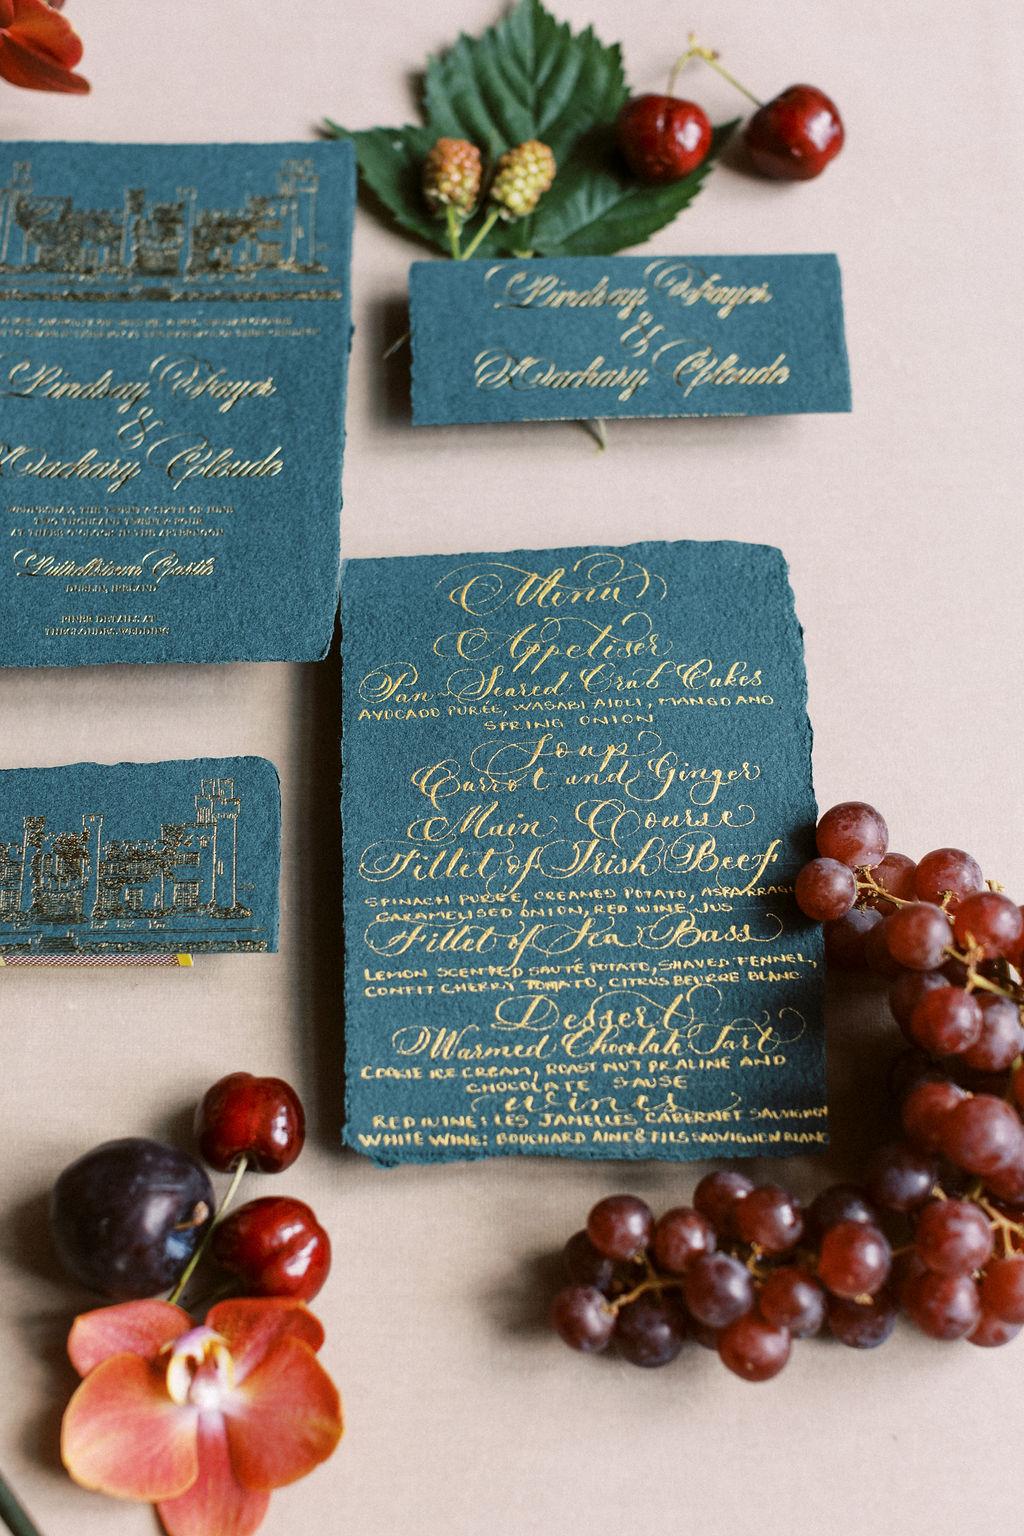 Lindsay Frayer
&
Zachary Cploude
WEDNESDAY, THE TWENTY SIXTH OF JUNE
TWO THOUSAND TWENTY FOUR
AT THREE O'CLOCK IN THE AFTERNOON
Luttrellstown Castle
DUBLIN, IRELAND
FINER DETAILS AT
Lindsay Frayer
&
Zachary Cploude
Menu
Appetiser
Pan-Seared Crab Cakes
AVOCADO PURÉE, WASABI AIOLI, MANGO AND
SPRING ONION
Soup
Carrot and Ginger
Main Course
Fillet of Irish Beef
SPINACH PURÉE, CREAMED POTATO, ASPARRAGU
CARAMELISED ONION, RED WINE JUS
Fillet of Sea Bass
LEMON SCENTED SAUTÉ POTATO, SHAVED FENNEL,
CONFIT CHERRY TOMATO, CITRUS BEURRE BLANC
Dessert
Warmed Chocolate Tart
COOKIE ICE CREAM, ROAST NUT PRALINE AND
CHOCOLATE SAUSE
Wines
RED WINE: LES JAMELLES CABERNET SAUVIGNON
WHITE WINE: BOUCHARD AINE & FILS SAUVIGNEN BLANC